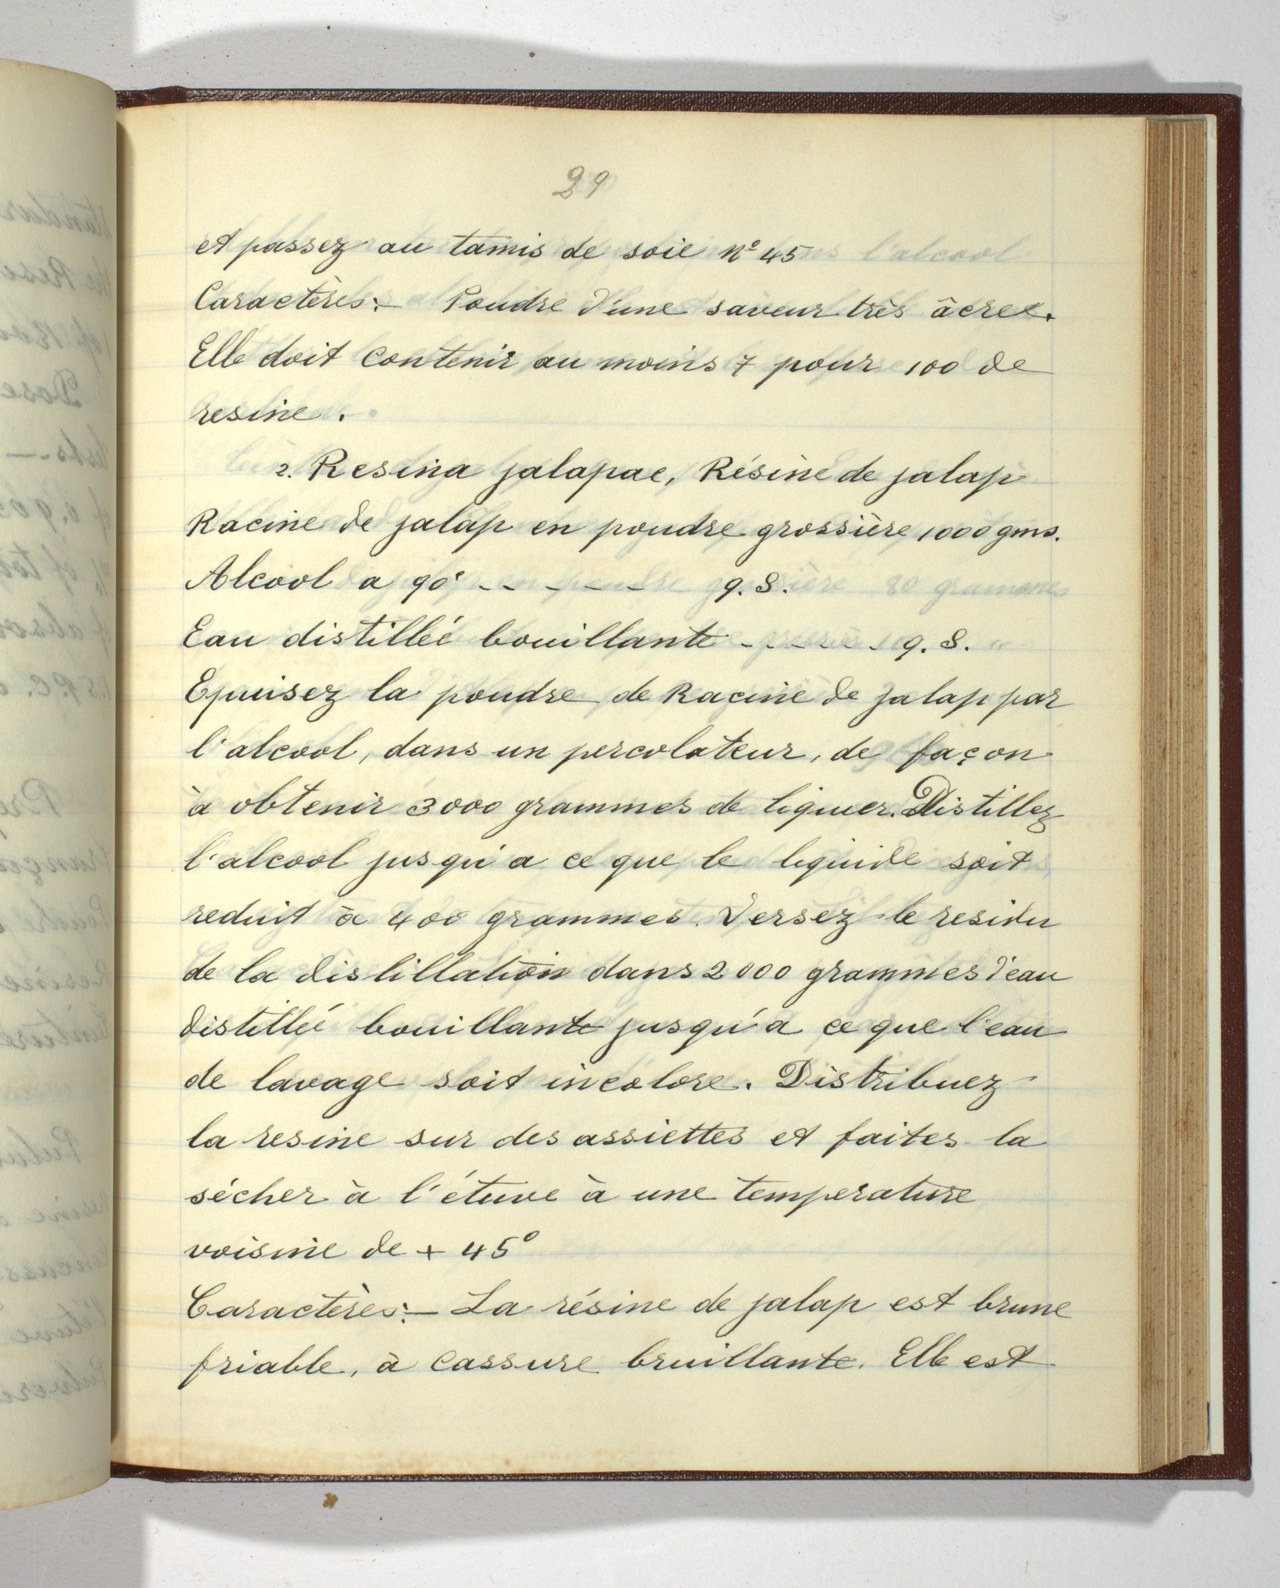 29
et passez au tamis de soie Nº 45
Caractères:- Poudre d'une saveur très âcre.
Elle doit contenir au moins 7 pour 100 de
resine.
2. Resina jalapae, Résine de jalap
Racine de jalap en poudre grossière 1000 gms.
Alcool a 90° - - - - - - q. S.
Eau distilleé bouillante - - - - - q. S.
Epuisez la poudre de Racine de jalap par
l'alcool, dans un percolateur, de façon
à obtenir 3000 grammes de liquer. Distillez
l'alcool jusqu'a ce que le liquide soit
reduit à 400 grammes. Versez le residu
de la distillation dans 2000 grammes d'eau
distilleé bouillante jusqu'a ce que l'eau
de lavage soit incolore. Distribuez
la resine sur des assiettes et faites la
sécher à l'étuve à une temperature
voisine de + 45°
Caractères:- La résine de jalap est brune
friable, à cassure bruillante. Elle est